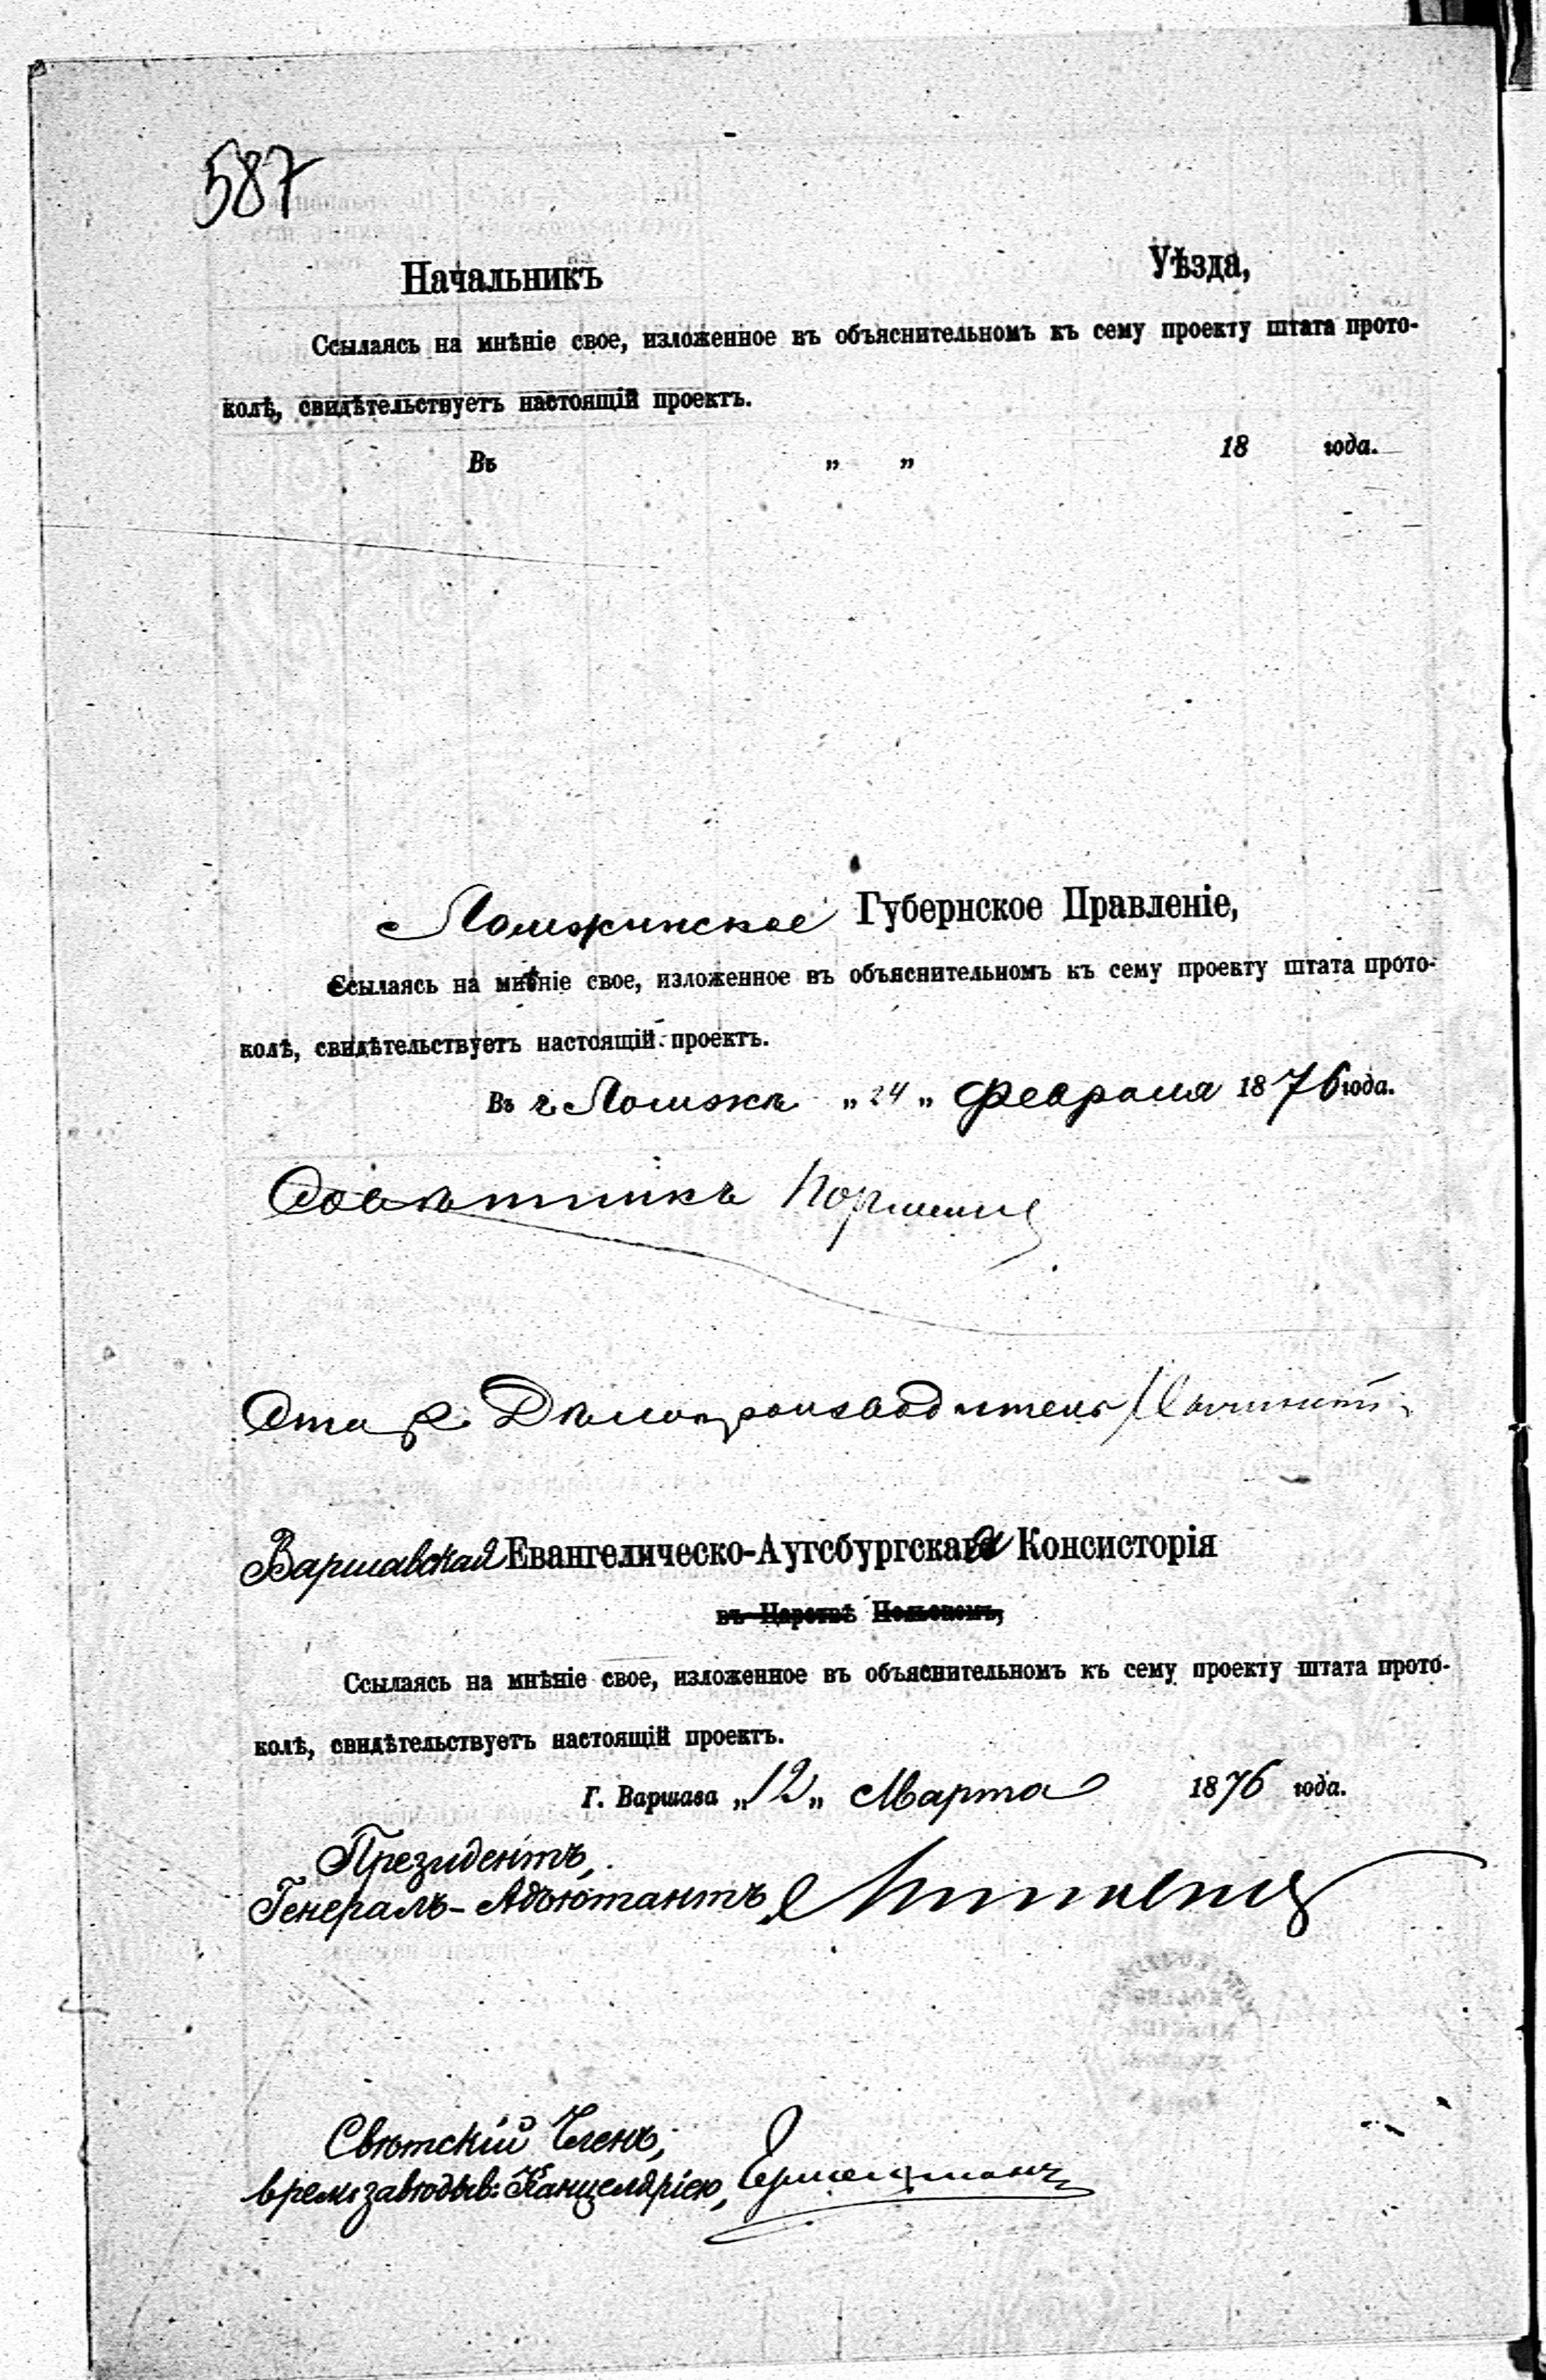 587
Начальникъ Уѣзда,
Ссылаясь на мнѣніе свое, изложенное въ объяснительномъ къ сему проекту штата прото-
колѣ, свидѣтельствуетъ настоящій проектъ.
Въ „ „ 18 года.
Ломжинское Губернское Правленіе,
Ссылаясь на мнѣніе свое, изложенное въ объяснительномъ къ сему проекту штата прото-
колѣ, свидѣтельствуетъ настоящій проектъ.
Въ г. Ломжѣ „24„ Февраля 1876 года.
Совѣтникъ
Дѣлопроизводитель
Варшавская Евангелическо-Аугсбургская Консисторія
въ Царствѣ Польскомъ,
Ссылаясь на мнѣніе свое, изложенное въ объяснительномъ къ сему проекту штата прото-
колѣ, свидѣтельствуетъ настоящій проектъ.
Г. Варшава „12„ Марта 1876 года.
Президентъ,
Генералъ-Адъютантъ,
Свѣтскій Членъ,
врем: завѣдыв: Канцеляріею,